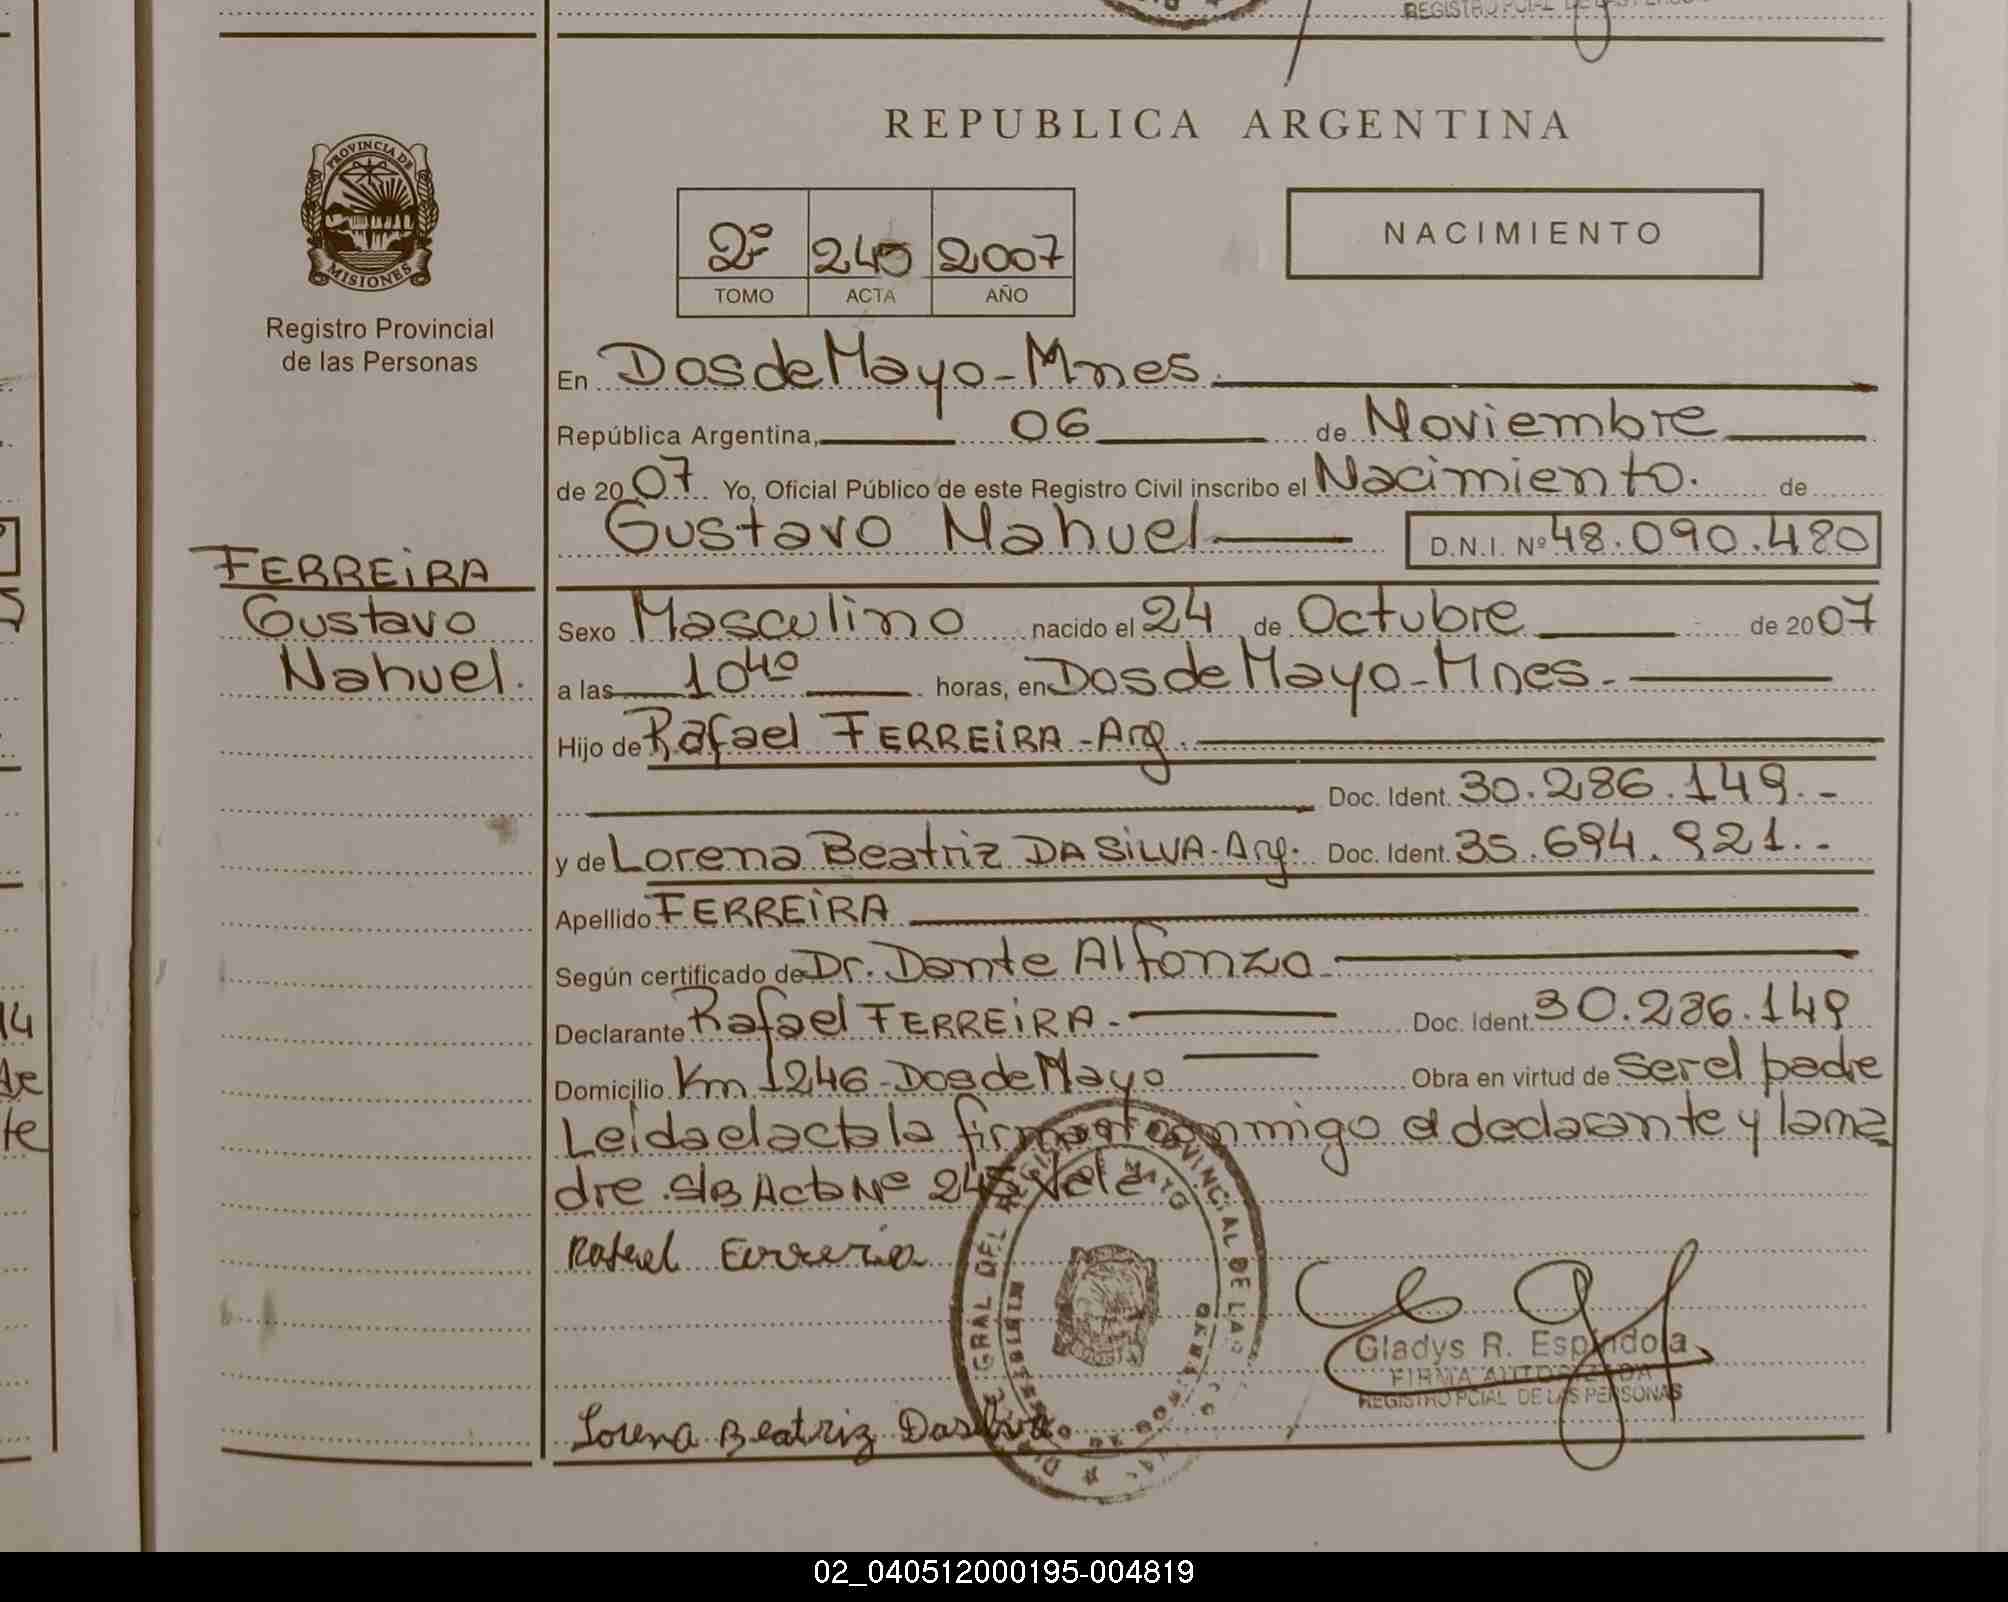 REGISTRO PCIAL DE LAS PERSO
REPUBLICA ARGENTINA
PROVINCIA DE
MISIONES
Registro Provincial
de las Personas
2º 245 2007
TOMO ACTA AÑO
NACIMIENTO
En Dos de Mayo - Mnes.
República Argentina, 06 de Noviembre
de 2007 Yo, Oficial Público de este Registro Civil inscribo el Nacimiento. de
Gustavo Nahuel D.N.I. Nº 48.090.480
FERREIRA
Gustavo
Nahuel.
Sexo Masculino nacido el 24 de Octubre de 2007
a las 10 40 horas, en Dos de Mayo - Mnes.
Hijo de Rafael FERREIRA - Arg.
Doc. Ident. 30.286.149.-
y de Lorena Beatriz DA SILVA - Arg. Doc. Ident. 35.694.921.-
Apellido FERREIRA
Según certificado de Dr. Dante Alfonzo
Declarante Rafael FERREIRA.- Doc. Ident. 30.286.149
Domicilio Km 1246 - Dos de Mayo Obra en virtud de ser el padre
Leida el acta la firman conmigo el declarante y la ma
dre. S/B Acta Nº 245 Vale
Rafael Ferreria
Gladys R. Espindola
FIRMA AUTORIZADA
REGISTRO PCIAL DE LAS PERSONAS
Lorena Beatriz Dasilva
GRAL DEL REGISTRO PROVINCIAL DE LAS
MAYO
14
te
02_040512000195-004819